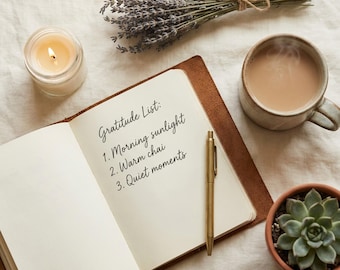 Gratitude List:
1. Morning sunlight
2. Warm chai
3. Quiet moments